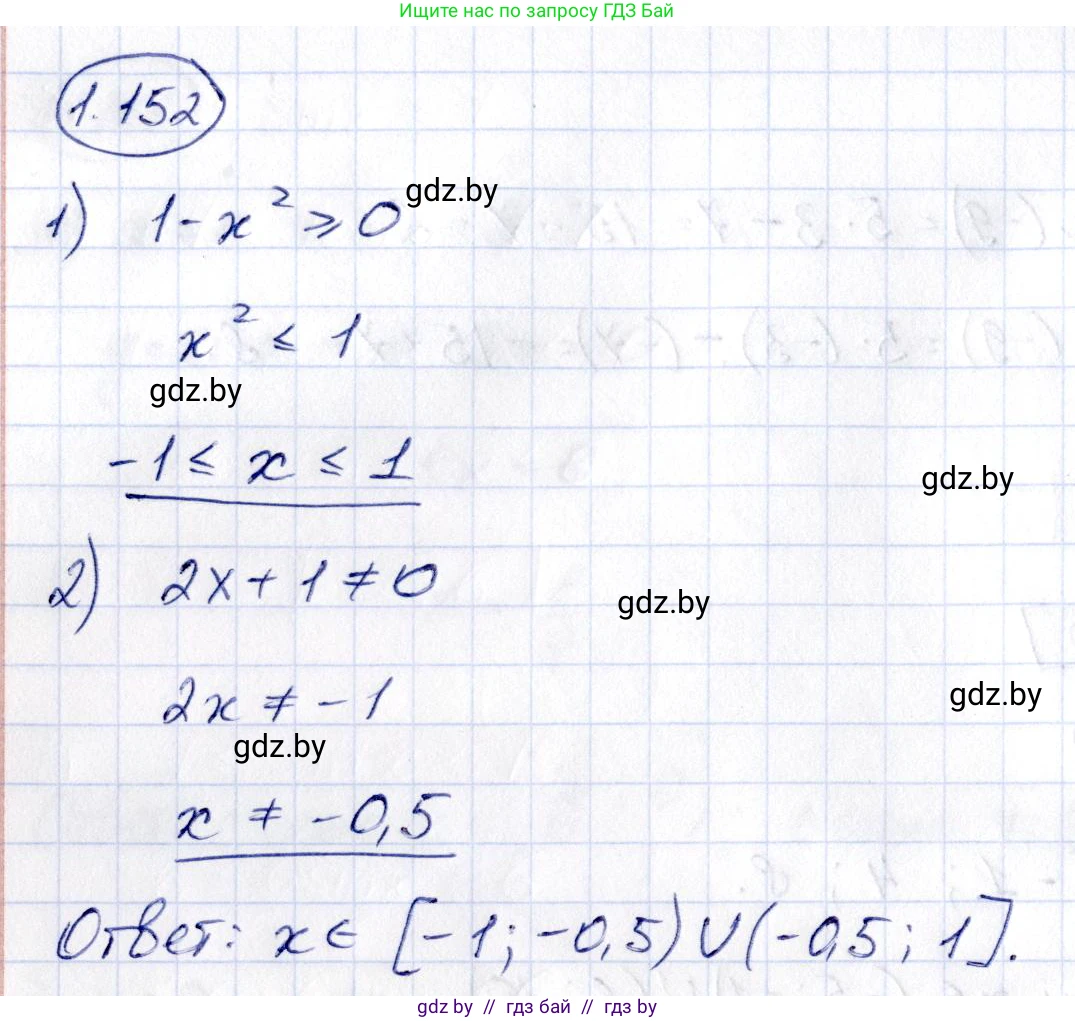 Ищите нас по запросу ГДЗ Бай
1.152
1) 1-x² ⩾ 0
gdz.by
x² ≤ 1
gdz.by
-1 ≤ x ≤ 1
gdz.by
2) 2x+1 ≠ 0
gdz.by
2x ≠ -1
gdz.by
gdz.by
x ≠ -0,5
Ответ: x ∈ [-1; -0,5) ∪ (-0,5; 1].
gdz.by // гдз бай // гдз by